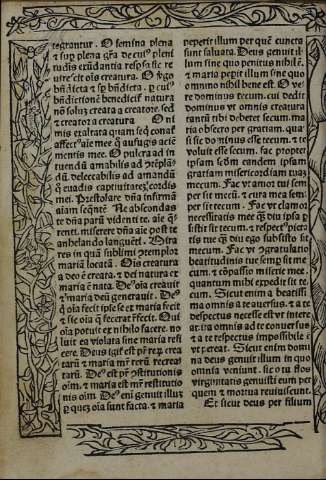 tegrantur. O femina plena
& suꝑ plena grã de cuiꝰ pleni
tudīs exūdantia respsa sic re
uirescit oīs creatura. O v̄go
bñdicta & sꝑ bñdicta. ꝑ cuiꝰ
bñdictionē benedicit̃ natura
nō solū creata a creatore. sed
& creator a creatura. O ni
mis exaltata quam seq̃ conat̃
affectꝰ aīe mee q̃ aufugis aciē
mentis mee. O pulcra ad in
tuendū amabilis ad
dū. delectabilis ad amandū
q̃ euadis captiuitatē cordis
mei. Prestolare dña infirmã
aīam seq̃nte. Ne abscondas
te dña parū videnti te. aīe q̃
renti. miserere dña aīe post te
anhelando languēt. Mira
res in quã sublimi
mariã locatã. Oīs creatura
a deo ē creata. & dei natura ex
maria ē nata. Deꝰ oīa creauit
& maria deū generauit. Deꝰ
q̃ oīa fecit ipse se ex maria fecit
& sic oīa q̃ fecerat refecit. Qui
oīa potuit ex nihilo facere. no
luit ea violata sine maria refi
cere. Deus igit̃ est pr̃ reꝝ crea
tarū & maria mr̃ rerū recrea
tarū. Deꝰ est pr̃ ꝯstitutionis
oīm. & maria est mr̃ restitutio
nis oīm. Deꝰ eni genuit illū
ꝑ quē oīa sunt facta. & maria
peperit illum per quē cuncta
sunt saluata. Deus genuit il
lum sine quo penitus nihil ē.
& maria pepit illum sine quo
omnino nihil bene est. O ve
re dominus tecum. cui dedit
dominus vt omnis creatura
tantū tibi deberet secum. ma
ria obsecro per gratiam. qua
si sic dominus esse tecum. & te
voluit esse secum. fac propter
ipsam sedm eandem ipsam
gratiam misericordiam tuam
mecum. Fac vt amor tui sem
per sit mecū. & cura mea sem
per sit tecum. Fac vt clamor
necessitatis mee q̃ diu ipsa ꝑ
sistit sit tecum. & respectꝰ pie
tis tue q̃ diu ego subsisto sit
mecum. Fac vt ꝯgratulatio
beatitudinis tue semꝑ sit me
cum. & cōpassio miserie mee.
quantum mihi expedit sit te
cum. Sicut enim a beatissi
ma omnis a te auersus. & a te
despectus necesse est vt intere
at. ita omnis ad te conuersus
& a te respectus impossibile ē
vt pereat. Sicut enim domi
na deus genuit illum in quo
omnia veniunt. sic o tu flos
virginitatis genuisti eum per
quem & mortua reuiuiscunt.
Et sicut deus per filium